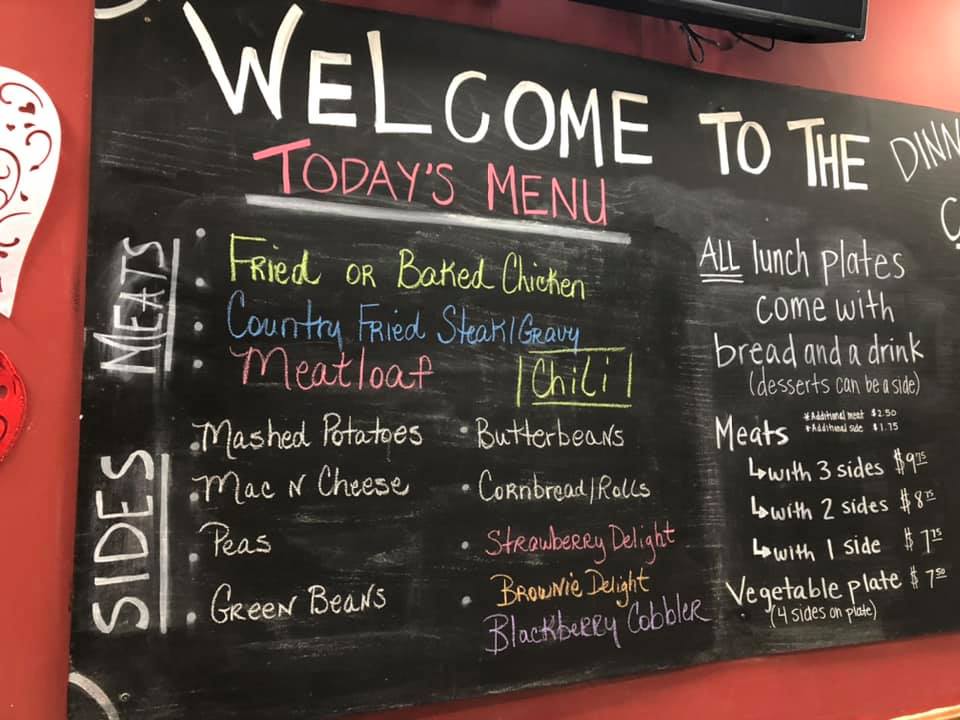 WELCOME TO THE DINN
C
TODAY'S MENU
MEATS
• Fried or Baked Chicken
• Country Fried Steak/Gravy
• Meatloaf
Chili
SIDES
• Mashed Potatoes
• Mac N Cheese
• Peas
• Green Beans
• Butterbeans
• Cornbread/Rolls
• Strawberry Delight
• Brownie Delight
Blackberry Cobbler
ALL lunch plates
come with
bread and a drink
(desserts can be a side)
Meats
*Additional meat $2.50
*Additional side $1.75
↳with 3 sides $9.75
↳with 2 sides $8.75
↳with 1 side $7.75
Vegetable plate $7.50
(4 sides on plate)